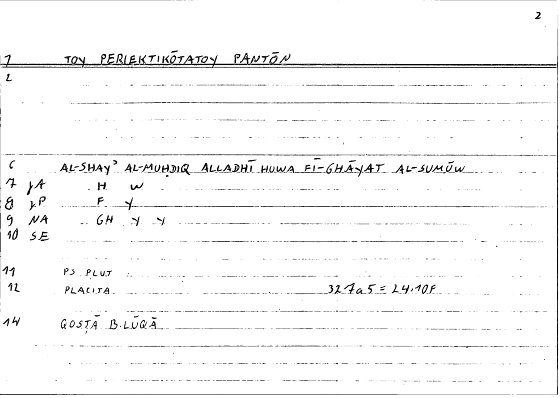 2
1 TOY PERIEKTIKŌTATOY PANTŌN
2
6 AL-SHAYʾ AL-MUHDIQ ALLADHĪ HUWA FĪ-GHĀYAT AL-SUMŪW
7 γA H W
8 γP F Y
9 NA GH Y Y
10 SE
11 PS PLUT
12 PLACITA 327a5 = 24.10F
14 QOSṬĀ B.LŪQĀ